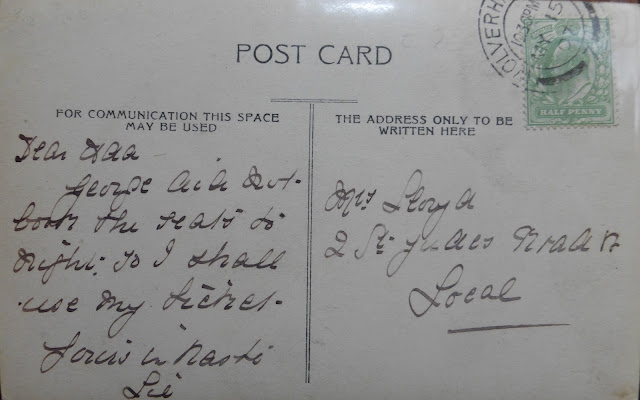 POST CARD
OLVERH
HALF PENNY
FOR COMMUNICATION THIS SPACE
MAY BE USED
Dear Ada
George did not
book the seats to
night. so I shall
use my ticket.
Yours in haste
Lil
THE ADDRESS ONLY TO BE
WRITTEN HERE
Mrs Lloyd
2 St Judes Road
Local